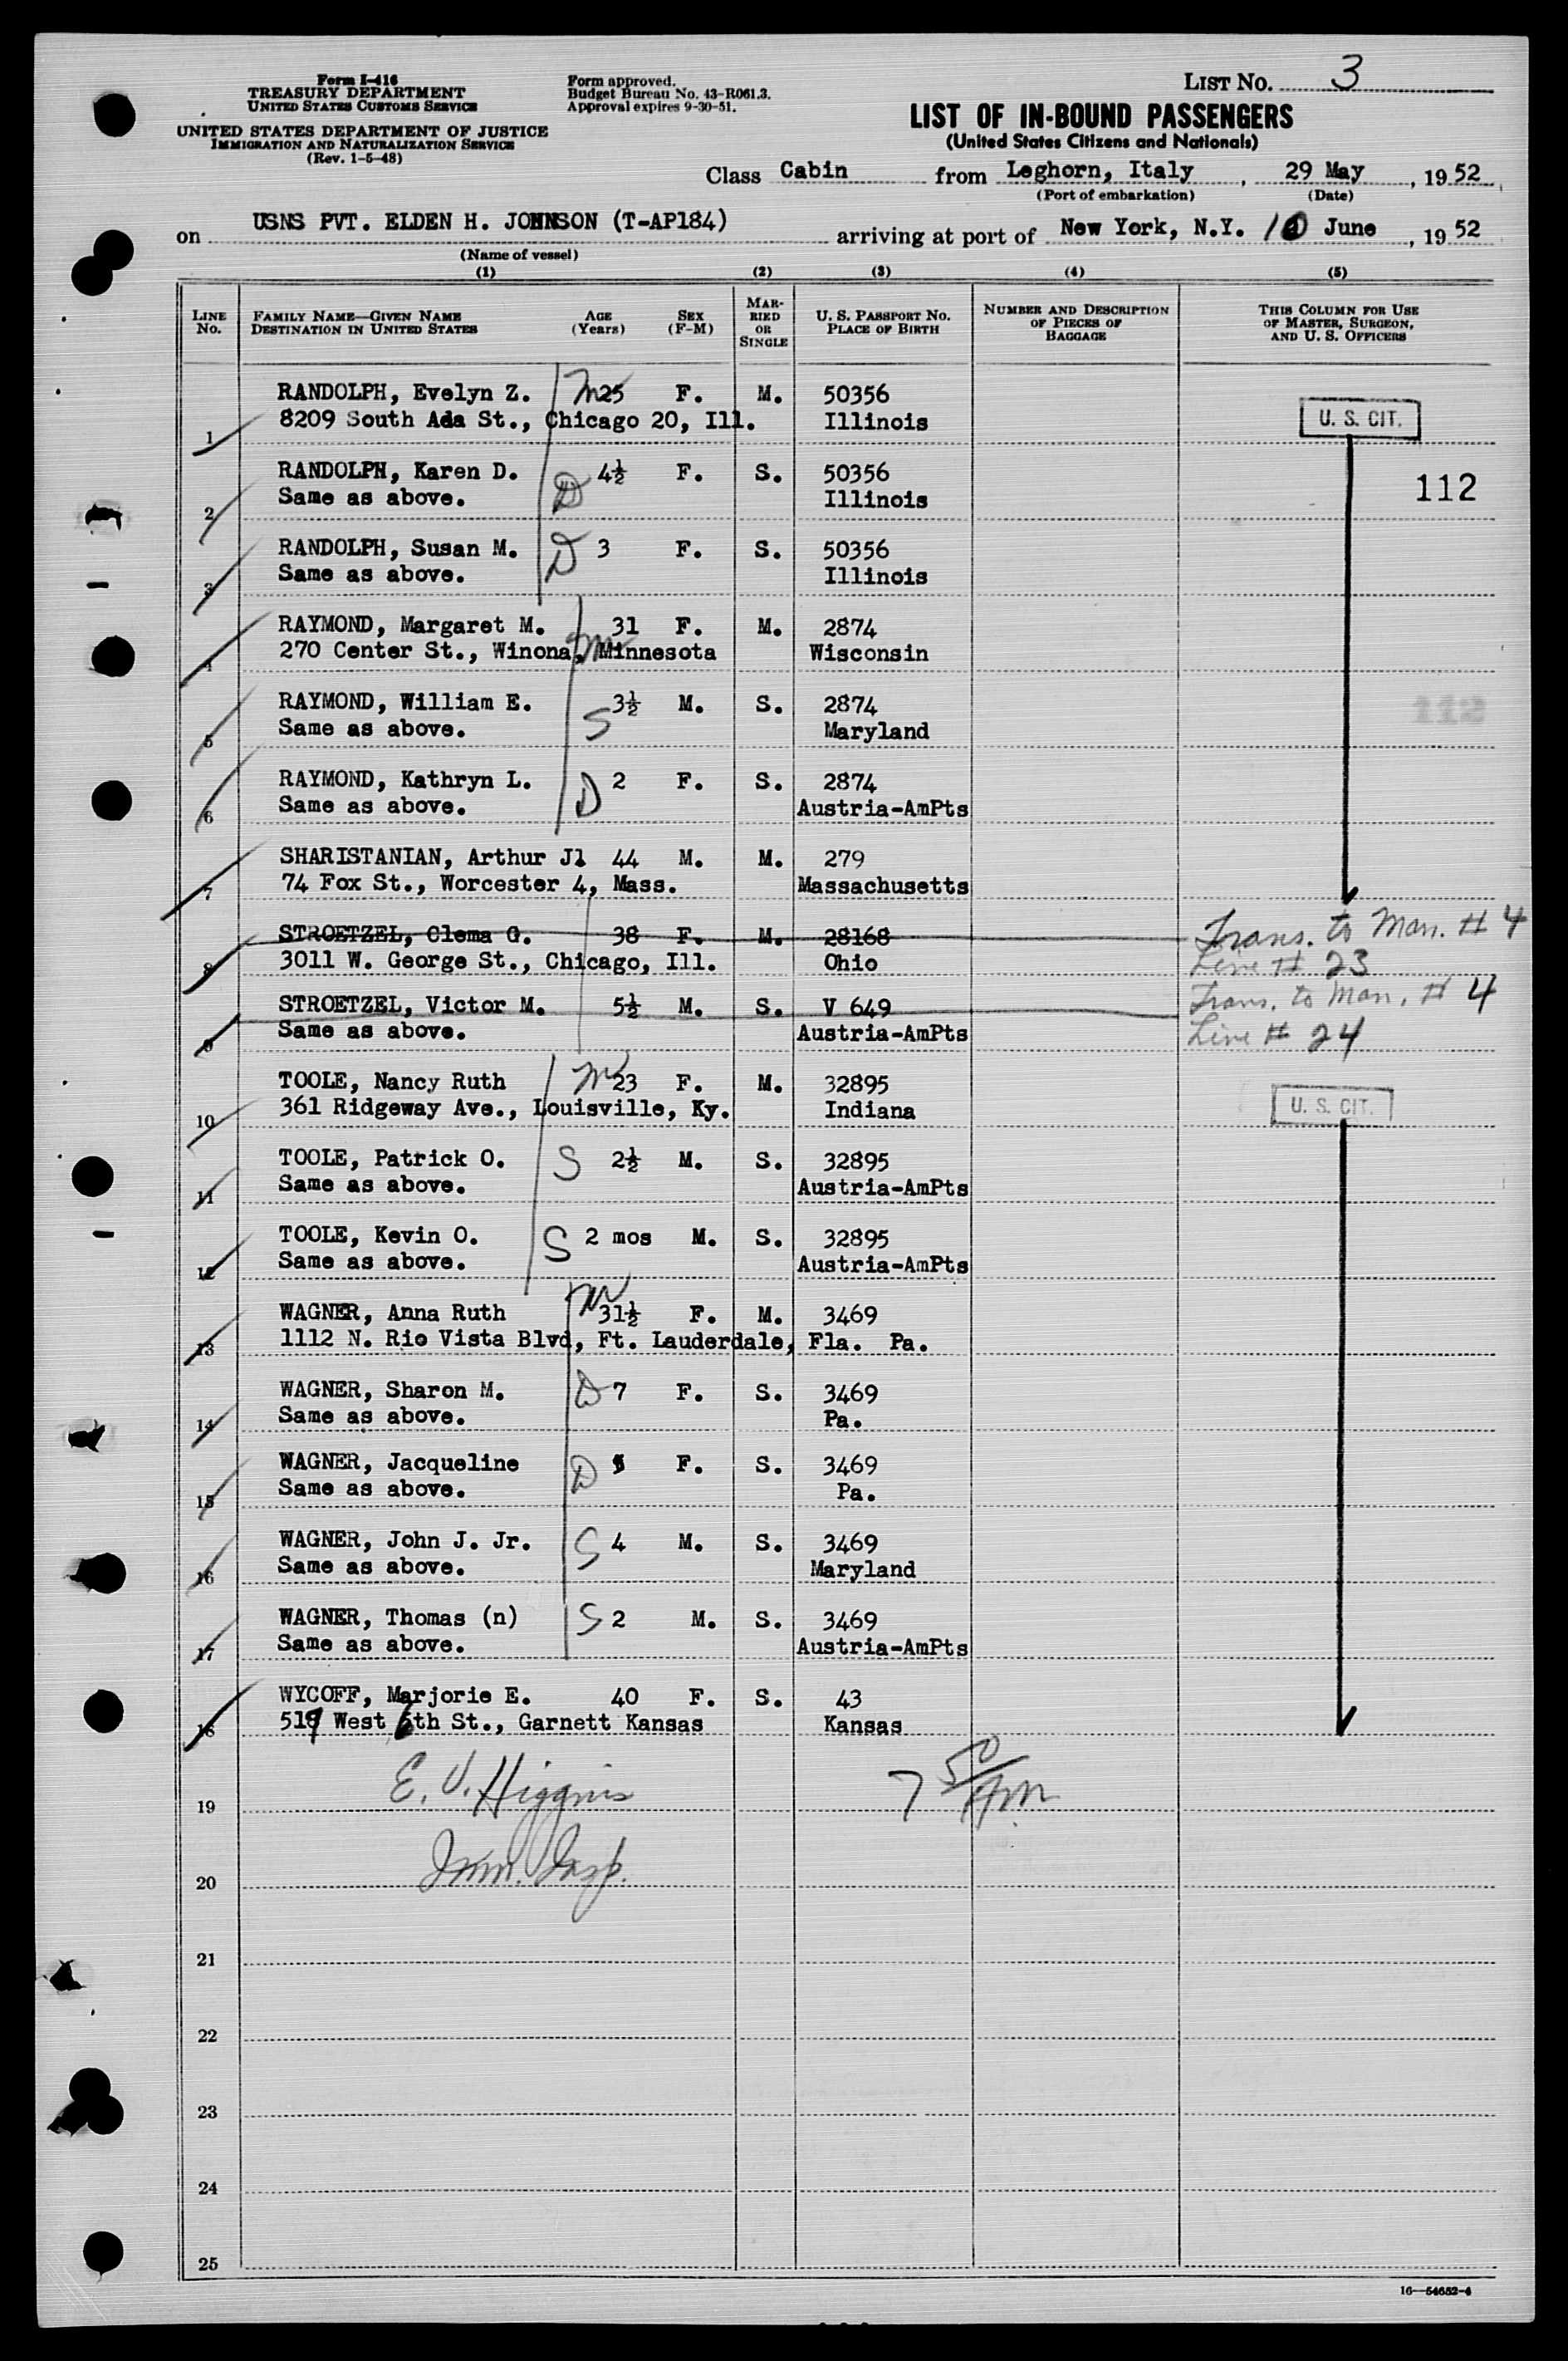 Form I-416
TREASURY DEPARTMENT
UNITED STATES CUSTOMS SERVICE
UNITED STATES DEPARTMENT OF JUSTICE
IMMIGRATION AND NATURALIZATION SERVICE
(Rev. 1-5-48)
Form approved.
Budget Bureau No. 43-R061.3.
Approval expires 9-30-51.
LIST NO. 3
LIST OF IN-BOUND PASSENGERS
(United States Citizens and Nationals)
Class Cabin from Leghorn, Italy, 29 May, 1952
(Port of embarkation) (Date)
on USNS PVT. ELDEN H. JOHNSON (T-AP184) arriving at port of New York, N.Y. 10 June, 1952
(Name of vessel)
(1) (2) (3) (4) (5)
LINE NO. FAMILY NAME—GIVEN NAME DESTINATION IN UNITED STATES AGE (Years) SEX (F-M) MARRIED OR SINGLE U. S. PASSPORT NO. PLACE OF BIRTH NUMBER AND DESCRIPTION OF PIECES OF BAGGAGE THIS COLUMN FOR USE OF MASTER, SURGEON, AND U. S. OFFICERS
RANDOLPH, Evelyn Z. M 25 F. M. 50356
1 8209 South Ada St., Chicago 20, Ill. Illinois U. S. CIT.
RANDOLPH, Karen D. D 4½ F. S. 50356
2 Same as above. Illinois 112
RANDOLPH, Susan M. D 3 F. S. 50356
3 Same as above. Illinois
RAYMOND, Margaret M. 31 F. M. 2874
4 270 Center St., Winona, M Minnesota Wisconsin
RAYMOND, William E. S 3½ M. S. 2874
5 Same as above. Maryland
RAYMOND, Kathryn L. D 2 F. S. 2874
6 Same as above. Austria-AmPts
SHARISTANIAN, Arthur Jl 44 M. M. 279
7 74 Fox St., Worcester 4, Mass. Massachusetts
STROETZEL, Clema G. 38 F. M. 28168 Trans. to Man. # 4
8 3011 W. George St., Chicago, Ill. Ohio Line # 23
STROETZEL, Victor M. 5½ M. S. V 649 Trans. to Man. # 4
9 Same as above. Austria-AmPts Line # 24
TOOLE, Nancy Ruth M 23 F. M. 32895
10 361 Ridgeway Ave., Louisville, Ky. Indiana U. S. CIT.
TOOLE, Patrick O. S 2½ M. S. 32895
11 Same as above. Austria-AmPts
TOOLE, Kevin O. S 2 mos M. S. 32895
12 Same as above. Austria-AmPts
WAGNER, Anna Ruth M 31½ F. M. 3469
13 1112 N. Rio Vista Blvd, Ft. Lauderdale, Fla. Pa.
WAGNER, Sharon M. D 7 F. S. 3469
14 Same as above. Pa.
WAGNER, Jacqueline D 5 F. S. 3469
15 Same as above. Pa.
WAGNER, John J. Jr. S 4 M. S. 3469
16 Same as above. Maryland
WAGNER, Thomas (n) S 2 M. S. 3469
17 Same as above. Austria-AmPts
WYCOFF, Marjorie E. 40 F. S. 43
18 519 West 6th St., Garnett Kansas Kansas
19 E. V. Higgins 7 50 AM
20 Imm. Insp.
21
22
23
24
25
16—54652-4